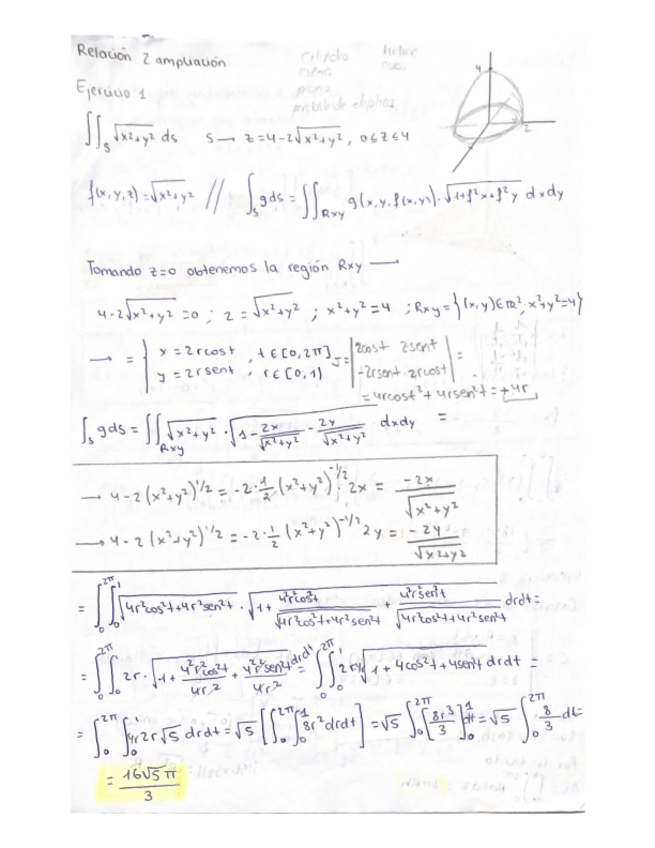 Relación 2 ampliación
cilindro hélice
esfera cono
plano
paraboloide elíptico
Ejercicio 1
4
2
∬_S √(x²+y²) ds S → z=4-2√(x²+y²), 0≤z≤4
f(x,y,z)=√(x²+y²) // ∫_S g ds = ∬_Rxy g(x,y,f(x,y))·√(1+f²x+f²y) dxdy
Tomando z=0 obtenemos la región Rxy →
4-2√(x²+y²)=0 ; 2=√(x²+y²) ; x²+y²=4 ; Rxy={(x,y)∈ℝ², x²+y²=4}
→ = { x=2rcost , t∈[0,2π] J= |2cost 2sent| =
y=2rsent , r∈[0,1) |-2rsent 2rcost|
=4rcost²+4rsen²t=+4r
∫_S g ds = ∬_Rxy √(x²+y²) · √(1 - 2x/√(x²+y²) - 2y/√(x²+y²)) dxdy =
→ 4-2(x²+y²)^1/2 = -2·1/2 (x²+y²)^-1/2 · 2x = -2x/√(x²+y²)
→ 4-2(x²+y²)^1/2 = -2·1/2 (x²+y²)^-1/2 2y = -2y/√(x²+y²)
= ∫₀^2π ∫₀^1 √(4r²cos²t+4r²sen²t) · √(1 + 4²r²cos²t/√(4r²cos²t+4r²sen²t) + 4²r²sen²t/√(4r²cos²t+4r²sen²t)) drdt =
= ∫₀^2π ∫₀^1 2r · √(1 + 4²r²cos²t/4r² + 4²r²sen²t/4r²) drdt = ∫₀^2π ∫₀^1 2r4r √(1+4cos²t+4sen²t) drdt =
= ∫₀^2π ∫₀^1 4r2r√5 drdt = √5 [∫₀^2π ∫₀^1 8r² drdt] = √5 ∫₀^2π [8r³/3]₀^1 dt = √5 ∫₀^2π 8/3 dt =
= 16√5 π/3